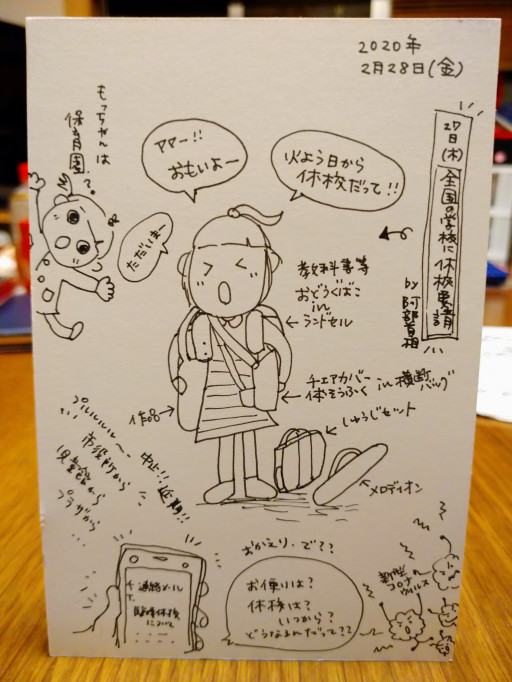 2020年
2月28日(金)
27日(木)
全国の学校に休校要請
by 阿部首相
もっちゃんは
保育園?
ママー!!
おもいよー
火よう日から
休校だって!!
ただいまー
教科書等
おどうぐばこ
in
ランドセル
チェアカバー
体そうふく
in 横断バッグ
作品
しゅうじセット
メロディオン
プルルルルー
市役所から
児童館から
プラザから
...
中止!! 延期!!
おかえり、で??
お便りは?
休校は?
いつから?
どうなるんだって??
連絡メール
臨時休校
について
新型
コロナ
ウィルス